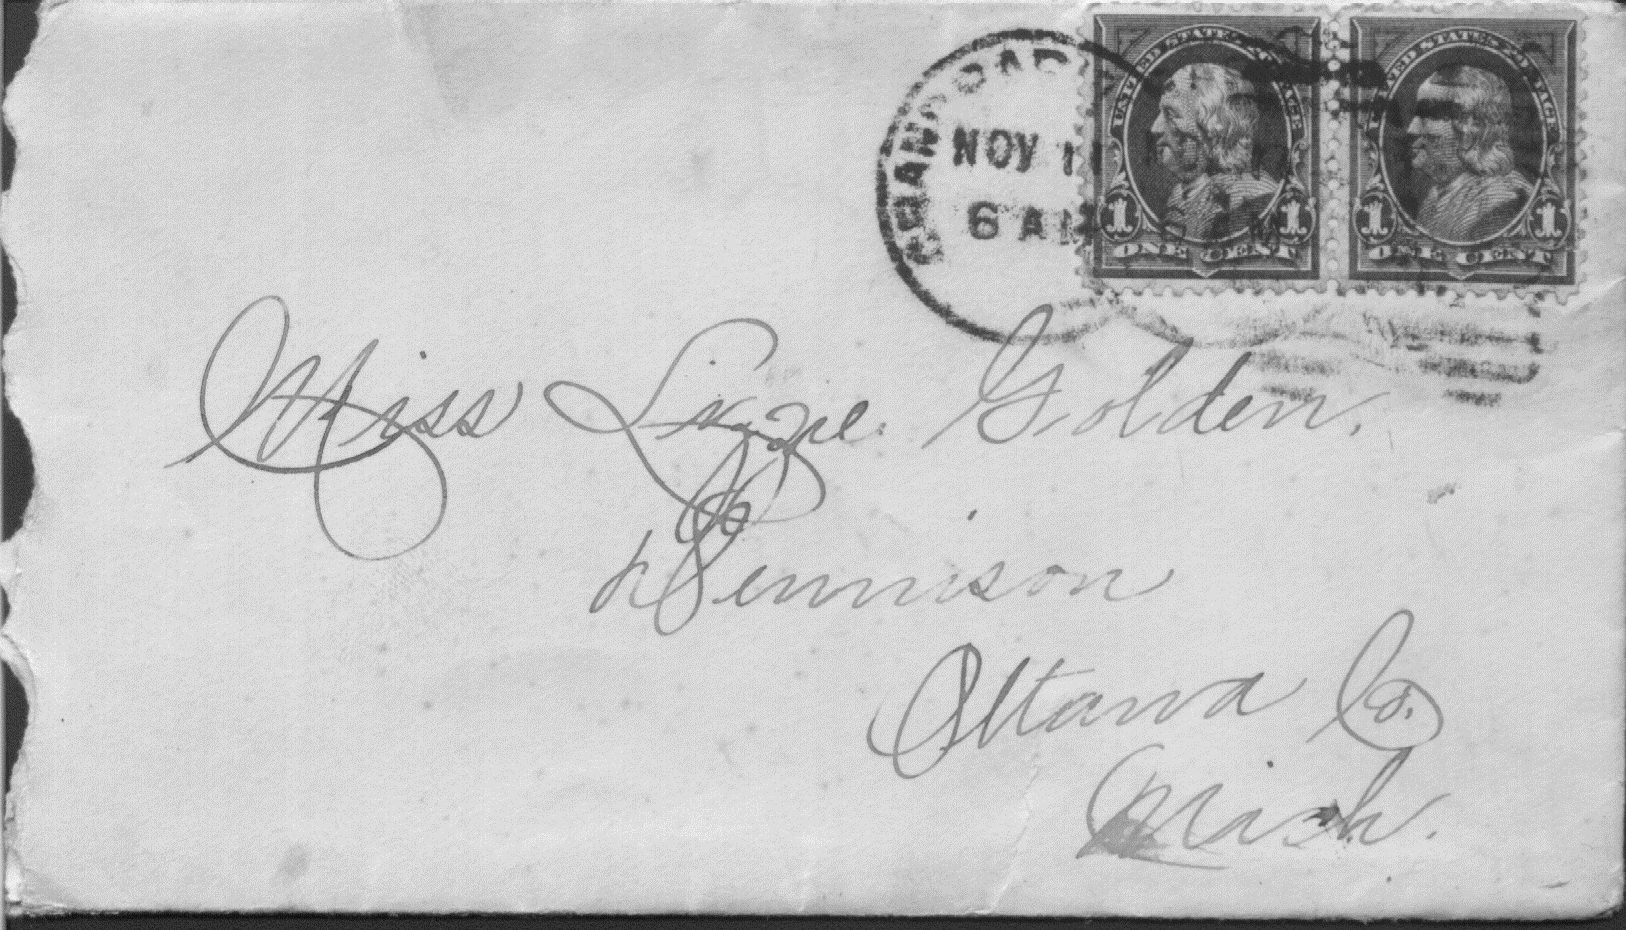 GRAND RAP
NOV 11
6 AM
UNITED STATES POSTAGE
1 1
ONE CENT
UNITED STATES POSTAGE
1 1
ONE CENT
Miss Lizzie Golden,
Dennison
Ottawa Co.
Mich.